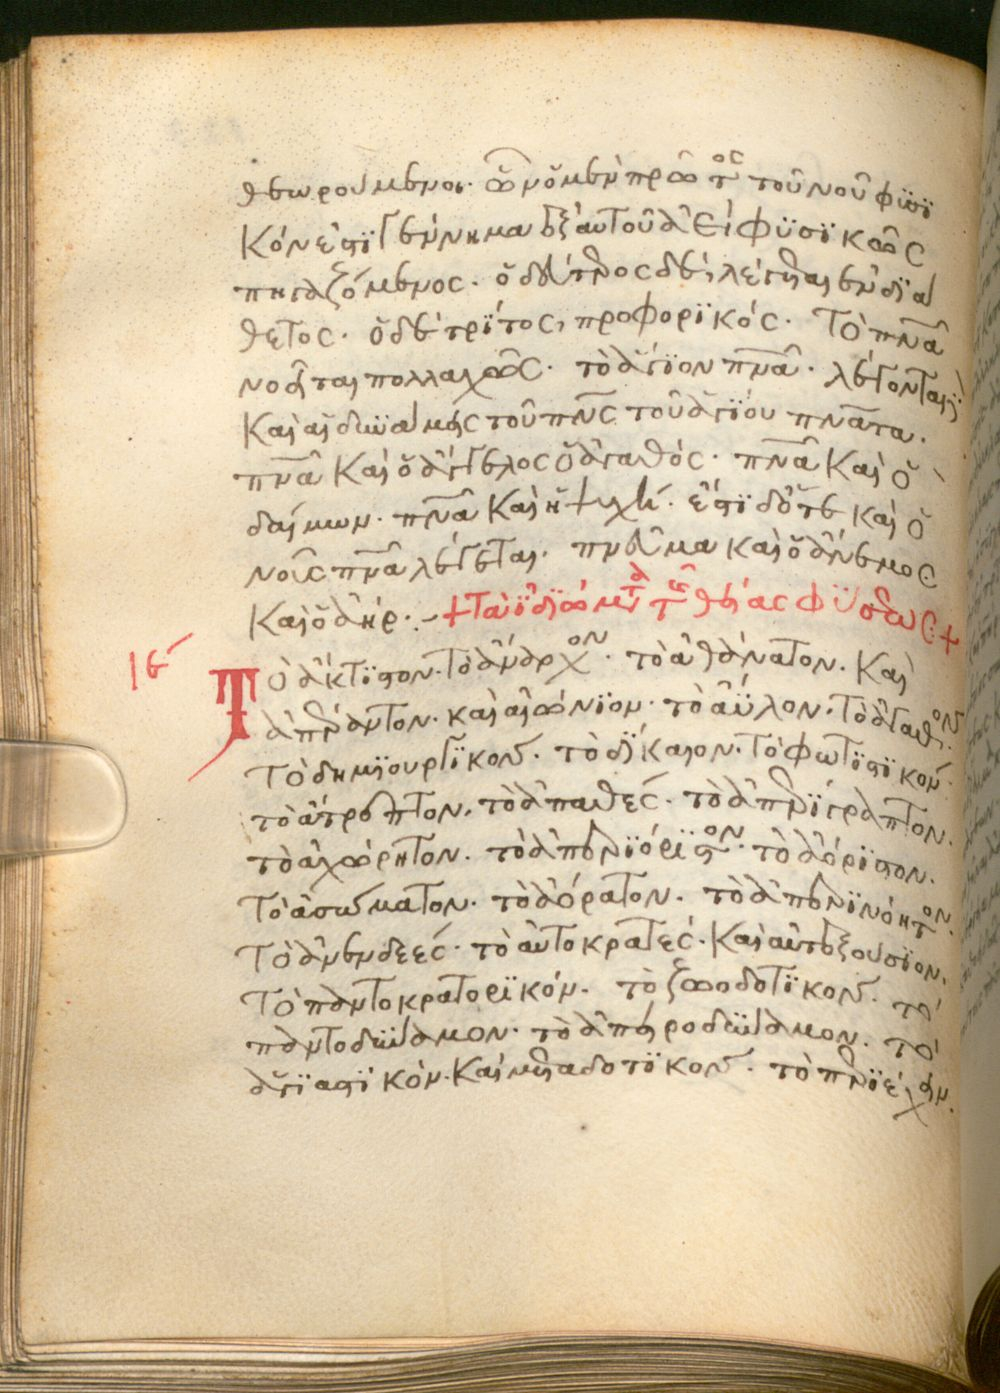 θεωρούμενος. ὧν ὁ μὲν πρῶτος τοῦ νοῦ φϋσϊ
κόν ἐστϊ γέννημα ἐξ αὐτοῦ ἀεὶ φϋσϊκῶς
πηγαζόμενος. ὁ δεύτερος δὲ, λέγεται ἐνδϊά
θετος. ὁ δὲ τρΐτος, προφορϊκός. Τὸ πνᾶ
νοεῖται πολλαχῶς. τὸ ἅγϊον πνᾶ. λέγονται
Καὶ αἱ δυνάμεις τοῦ πνς τοῦ ἁγΐου πνᾶτα.
πνᾶ Καὶ ὁ ἄγγελος ὁ ἀγαθός. πνᾶ Καὶ ὁ
δαίμων. πνᾶ Καὶ ἡ ψυχή. ἔστϊ δὅτε καὶ ὁ
νοῦς πνᾶ λέγεται. πνεῦμα καὶ ὁ ἄνεμος
Καὶ ὁ ἀήρ. + Τὰ ἰδϊώματα τῆς θείας φϋσεως +
ιϛ´
Τὸ ἄκτϊστον. Τὸ ἄναρχον. τὸ ἀθάνατον. Καὶ
ἀπέραντον. καὶ αἰώνϊον. τὸ ἄϋλον. Τὸ ἀγαθόν.
Τὸ δημϊουργϊκόν. τὸ δΐκαιον. Τὸ φωτϊστϊκόν.
τὸ ἄτρεπτον. τὸ ἀπαθές. τὸ ἀπερΐγραπτον.
τὸ ἀχώρητον. τὸ ἀπερϊόρϊστον. τὸ ἀόρϊστον.
Τὸ ἀσώματον. τὸ ἀόρατον. τὸ ἀπερϊνόητον.
Τὸ ἀνενδεές. τὸ αὐτοκρατές. Καὶ αὐτεξουσϊον.
Τὸ παντοκρατορϊκόν. τὸ ζωοδοτϊκόν. τὸ
παντοδΰναμον. τὸ ἀπειροδΰναμον. τὸ
ἁγϊαστϊκόν. Καὶ μεταδοτϊκόν. τὸ περϊέχειν.